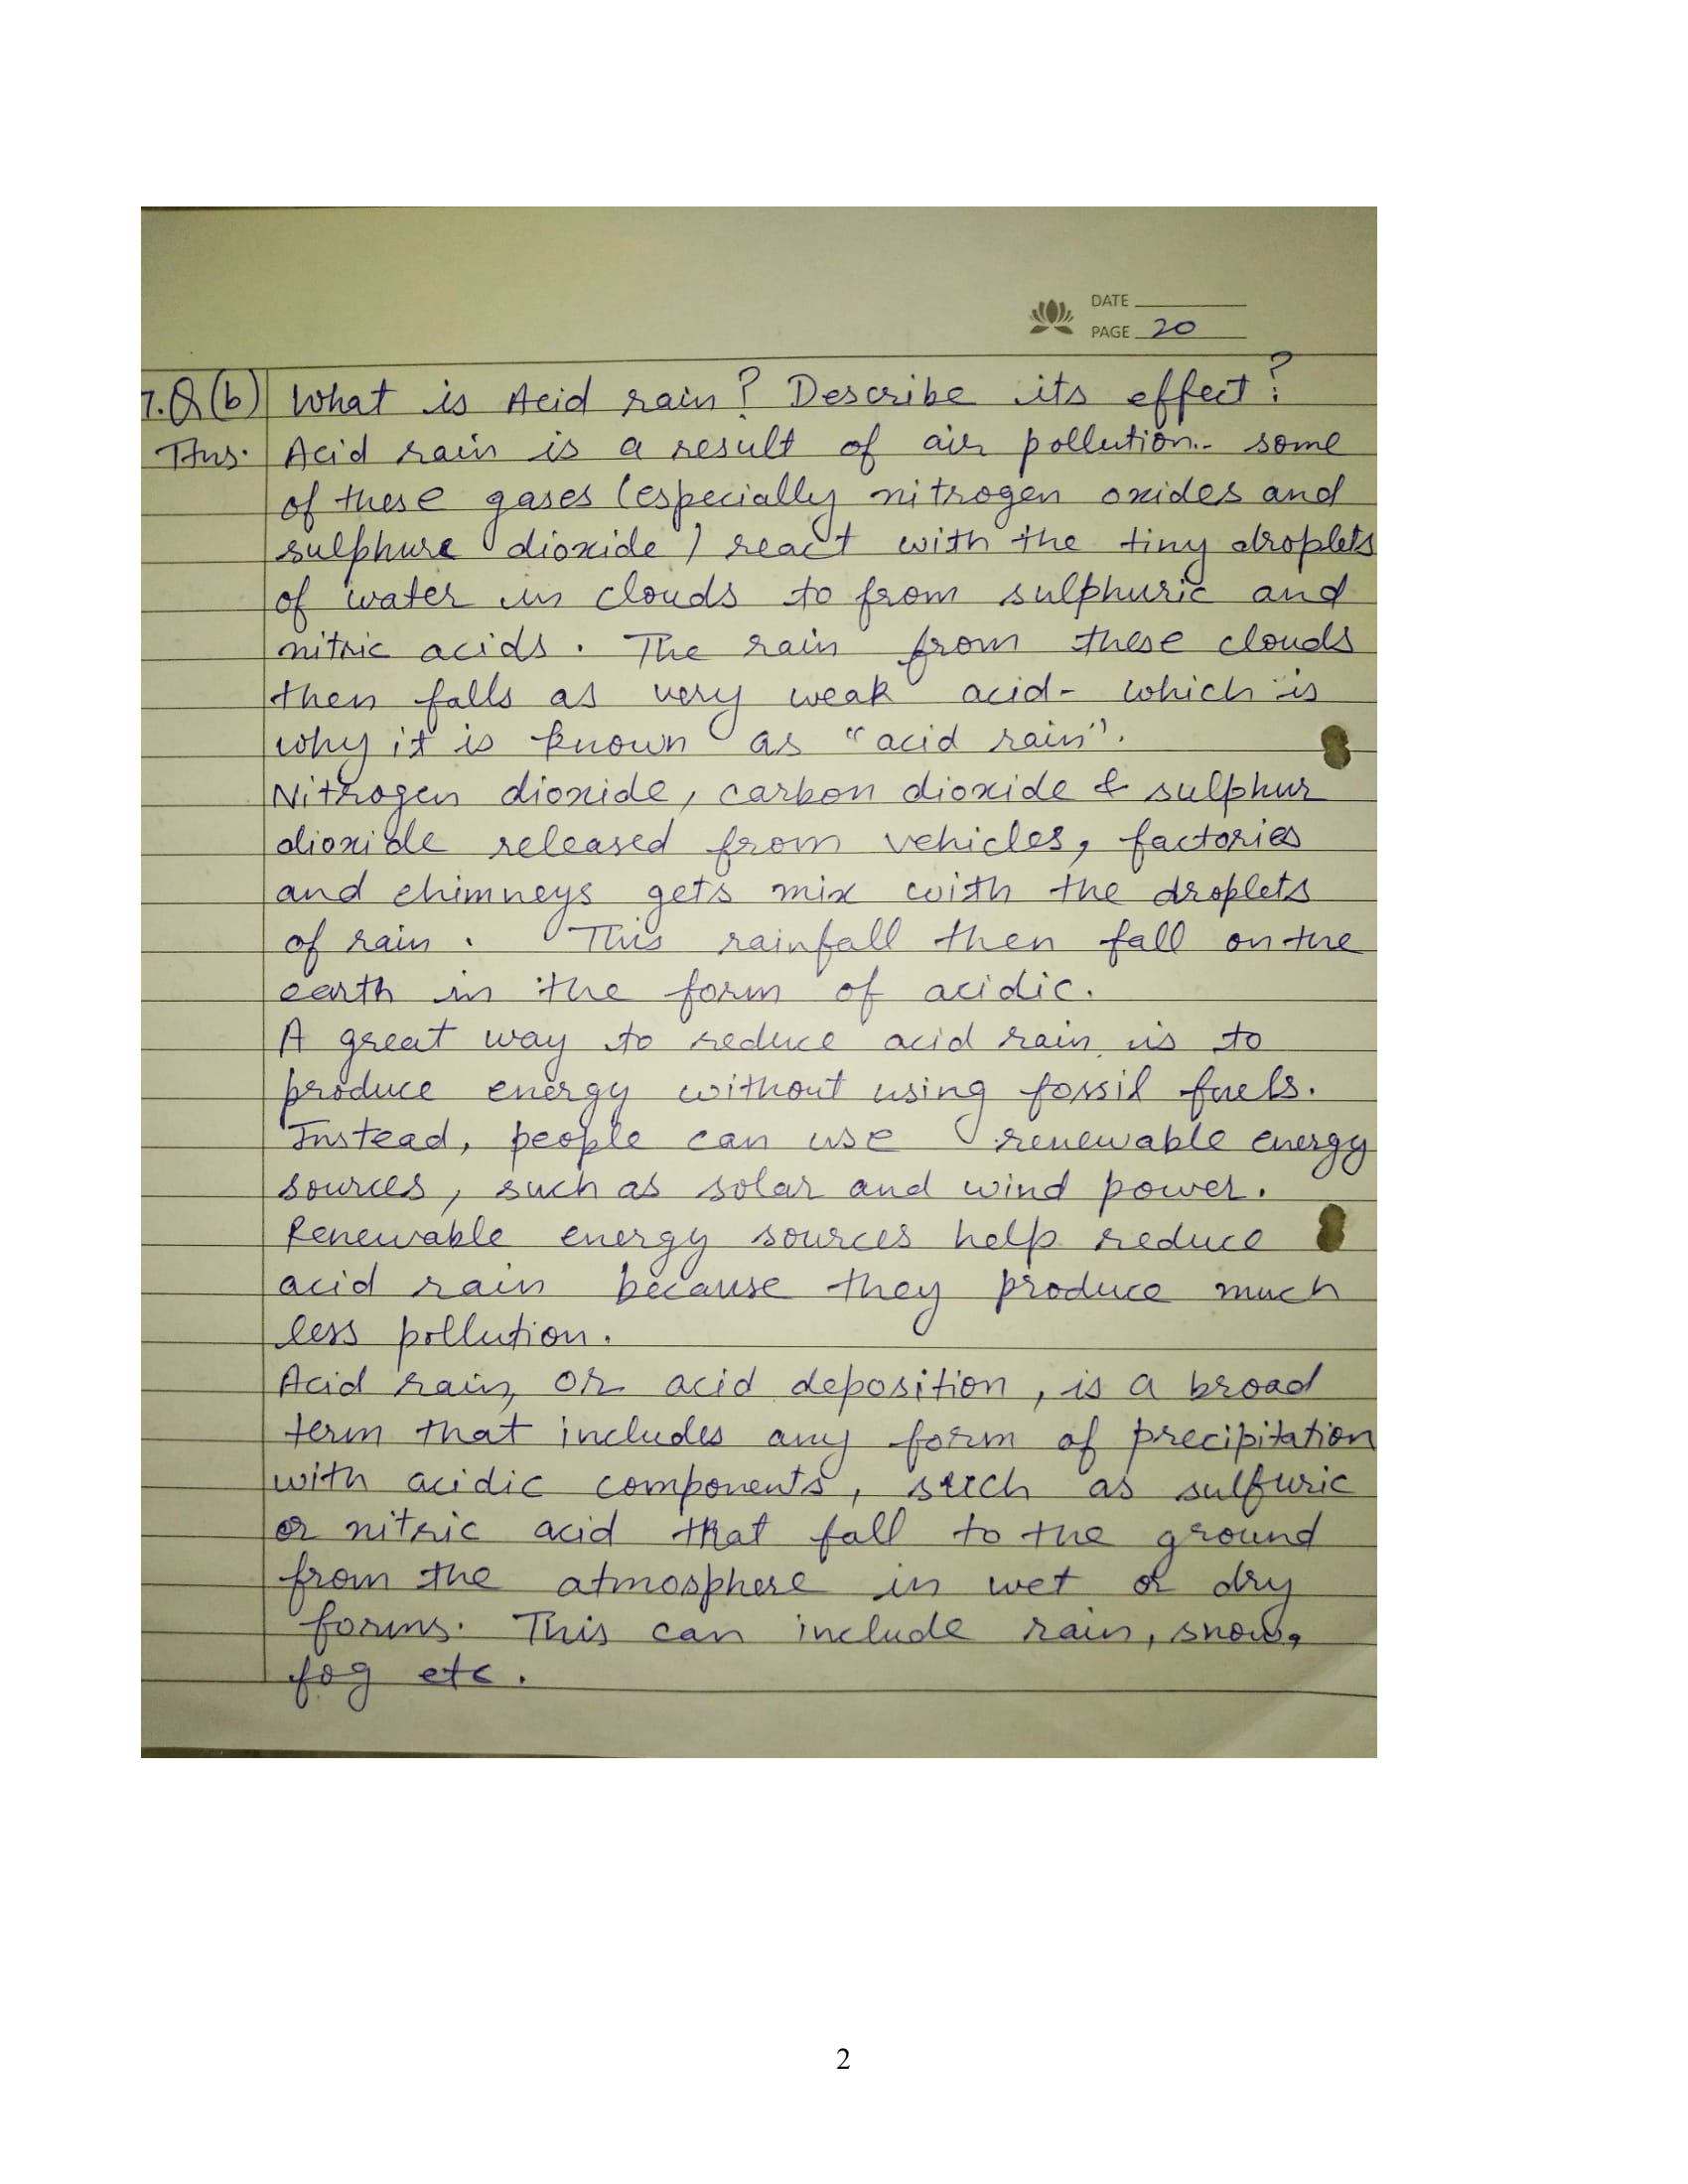 DATE
PAGE 20
7.Q(b) What is Acid rain? Describe its effect?
Ans. Acid rain is a result of air pollution.. some
of these gases (especially nitrogen oxides and
sulphure dioxide) react with the tiny droplets
of water in clouds to from sulphuric and
nitric acids. The rain from these clouds
then falls as very weak acid- which is
why it is known as "acid rain".
Nitrogen dioxide, carbon dioxide & sulphur
dioxide released from vehicles, factories
and chimneys gets mix with the droplets
of rain. This rainfall then fall on the
earth in the form of acidic.
A great way to reduce acid rain is to
produce energy without using fossil fuels.
Instead, people can use renewable energy
sources, such as solar and wind power.
Renewable energy sources help reduce
acid rain because they produce much
less pollution.
Acid rain, or acid deposition, is a broad
term that includes any form of precipitation
with acidic components, such as sulfuric
or nitric acid that fall to the ground
from the atmosphere in wet or dry
forms. This can include rain, snow,
fog etc.
2